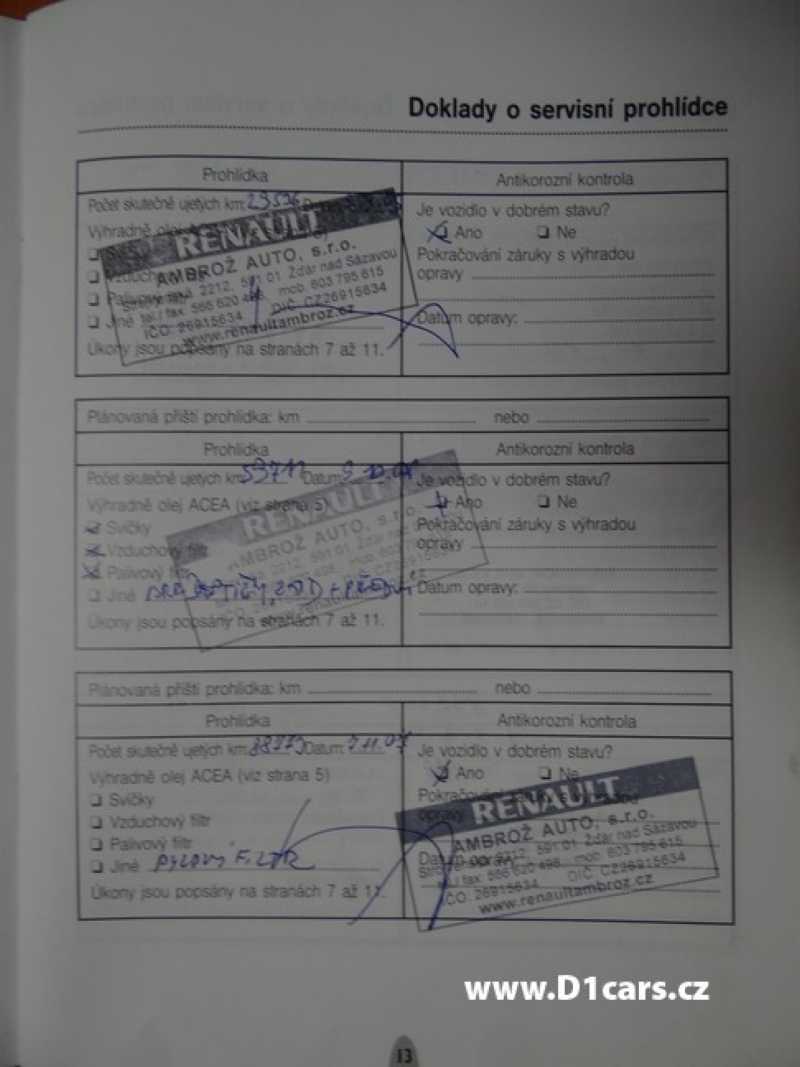 Doklady o servisní prohlídce
Prohlídka
Antikorozní kontrola
Počet skutečně ujetých km: Datum
Je vozidlo v dobrém stavu?
Výhradně olej
Ano Ne
Pokračování záruky s výhradou
opravy
Vzduch
Palivový
Jiné
Datum opravy:
Úkony jsou popsány na stranách 7 až 11.
RENAULT
AMBROŽ AUTO, s.r.o.
2212, 591 01 Žďár nad Sázavou
tel./ fax: 566 620 498, mob. 603 795 615
IČO: 26915634 DIČ: CZ26915634
www.renaultambroz.cz
Plánovaná příští prohlídka: km nebo
Prohlídka
Antikorozní kontrola
Počet skutečně ujetých km: Datum:
Je vozidlo v dobrém stavu?
Výhradně olej ACEA (viz strana 5)
Ano Ne
Svíčky
Pokračování záruky s výhradou
Vzduchový filtr
opravy
Palivový filtr
Jiné
Datum opravy:
Úkony jsou popsány na stranách 7 až 11.
RENAULT
AMBROŽ AUTO, s.r.o.
Plánovaná příští prohlídka: km nebo
Prohlídka
Antikorozní kontrola
Počet skutečně ujetých km: Datum: 7.11.07
Je vozidlo v dobrém stavu?
Výhradně olej ACEA (viz strana 5)
Ano Ne
Svíčky
Pokračování záruky s výhradou
Vzduchový filtr
opravy
Palivový filtr
Datum opravy:
Jiné PYLOVÝ FILTR
Úkony jsou popsány na stranách 7 až 11.
RENAULT
AMBROŽ AUTO, s.r.o.
2212, 591 01 Žďár nad Sázavou
tel./ fax: 566 620 498, mob. 603 795 615
IČO: 26915634 DIČ: CZ26915634
www.renaultambroz.cz
www.D1cars.cz
13